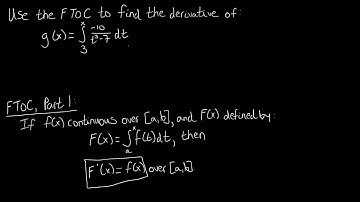 Use the FToC to find the derivative of:
g(x) = ∫₃ˣ -10/(t²-7) dt
FToC, Part 1:
If f(x) continuous over [a,b], and F(x) defined by:
F(x) = ∫ₐˣ f(t)dt, then
F'(x) = f(x) over [a,b]